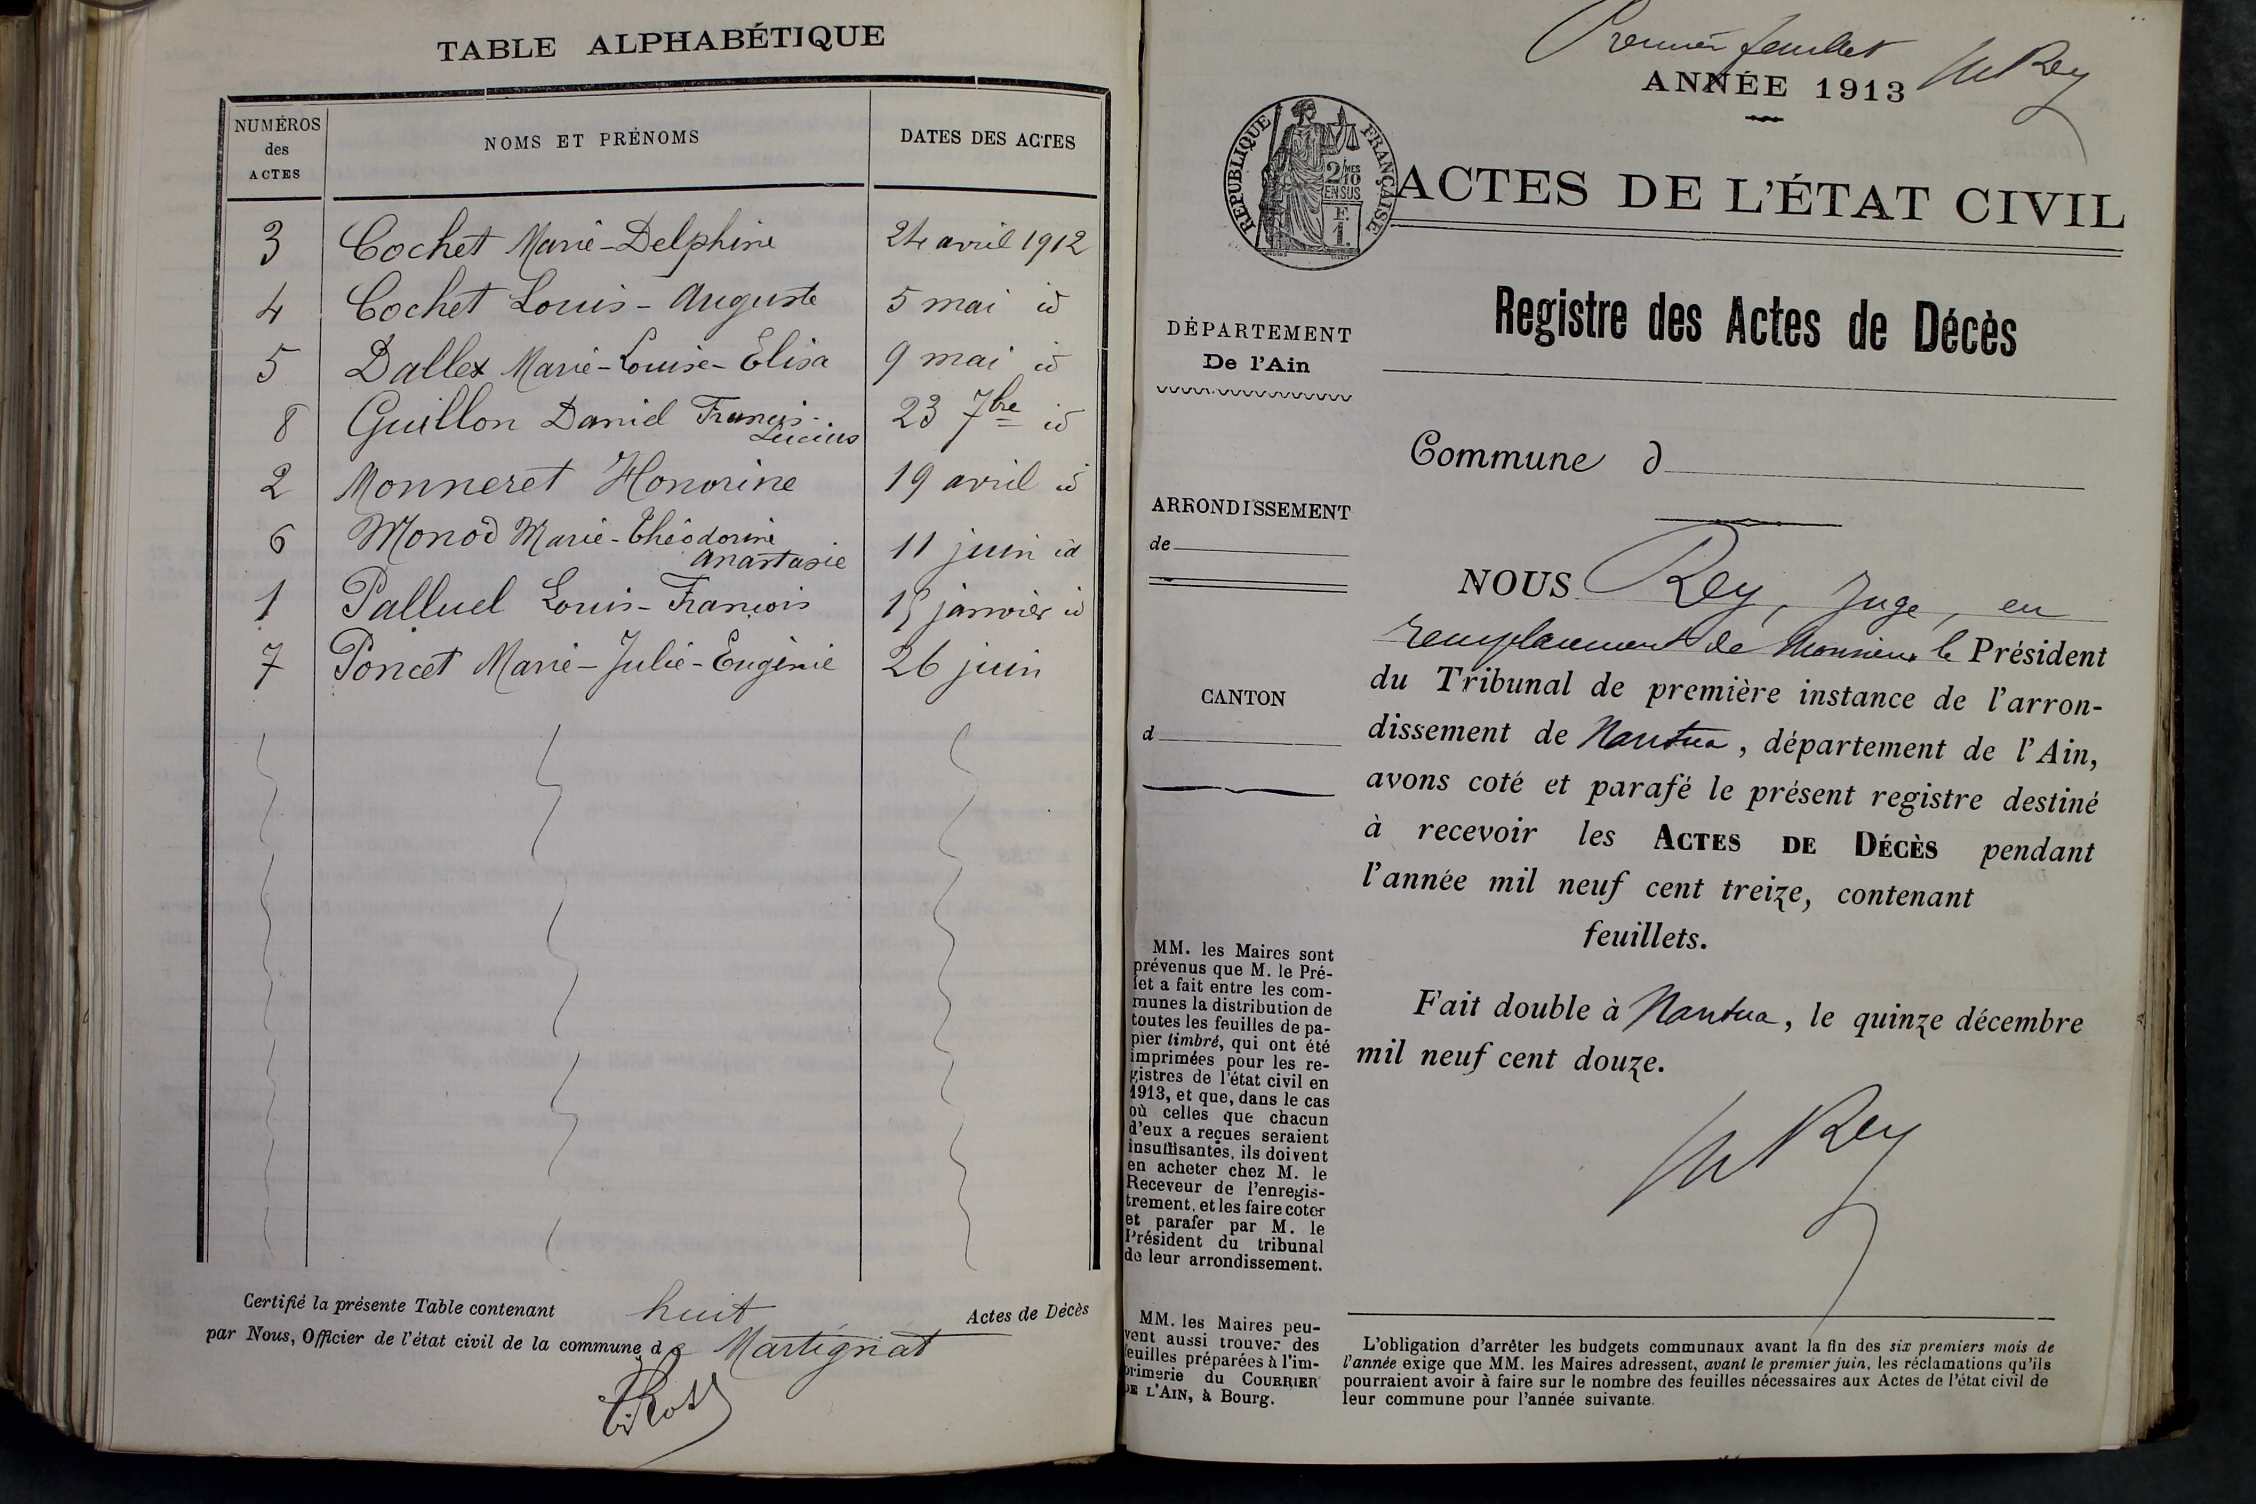 TABLE ALPHABÉTIQUE
NUMÉROS
des
ACTES
NOMS ET PRÉNOMS
DATES DES ACTES
3 Cochet Marie-Delphine 24 avril 1912
4 Cochet Louis-Auguste 5 mai id
5 Dallex Marie-Louise-Elisa 9 mai id
8 Guillon Daniel Francis- 23 7bre id
Lucius
2 Monneret Honorine 19 avril id
6 Monod Marie-Théodorine 11 juin id
Anastasie
1 Palluel Louis-François 15 janvier id
7 Poncet Marie-Julie-Eugénie 26 juin
Certifié la présente Table contenant huit Actes de Décès
par Nous, Officier de l'état civil de la commune de Martignat
Premier feuillet
Rey
ANNÉE 1913
RÉPUBLIQUE FRANÇAISE
2/10MES
EN SUS
F.
1.
ACTES DE L'ÉTAT CIVIL
Registre des Actes de Décès
DÉPARTEMENT
De l'Ain
Commune d
ARRONDISSEMENT
de
CANTON
d
NOUS Rey, Juge, en
remplacement de Monsieur le Président
du Tribunal de première instance de l'arron-
dissement de Nantua, département de l'Ain,
avons coté et parafé le présent registre destiné
à recevoir les ACTES DE DÉCÈS pendant
l'année mil neuf cent treize, contenant
feuillets.
Fait double à Nantua, le quinze décembre
mil neuf cent douze.
Rey
MM. les Maires sont
prévenus que M. le Pré-
fet a fait entre les com-
munes la distribution de
toutes les feuilles de pa-
pier timbré, qui ont été
imprimées pour les re-
gistres de l'état civil en
1913, et que, dans le cas
où celles que chacun
d'eux a reçues seraient
insuffisantes, ils doivent
en acheter chez M. le
Receveur de l'enregis-
trement, et les faire coter
et parafer par M. le
Président du tribunal
de leur arrondissement.
MM. les Maires peu-
vent aussi trouver des
feuilles préparées à l'im-
primerie du COURRIER
DE L'AIN, à Bourg.
L'obligation d'arrêter les budgets communaux avant la fin des six premiers mois de
l'année exige que MM. les Maires adressent, avant le premier juin, les réclamations qu'ils
pourraient avoir à faire sur le nombre des feuilles nécessaires aux Actes de l'état civil de
leur commune pour l'année suivante.